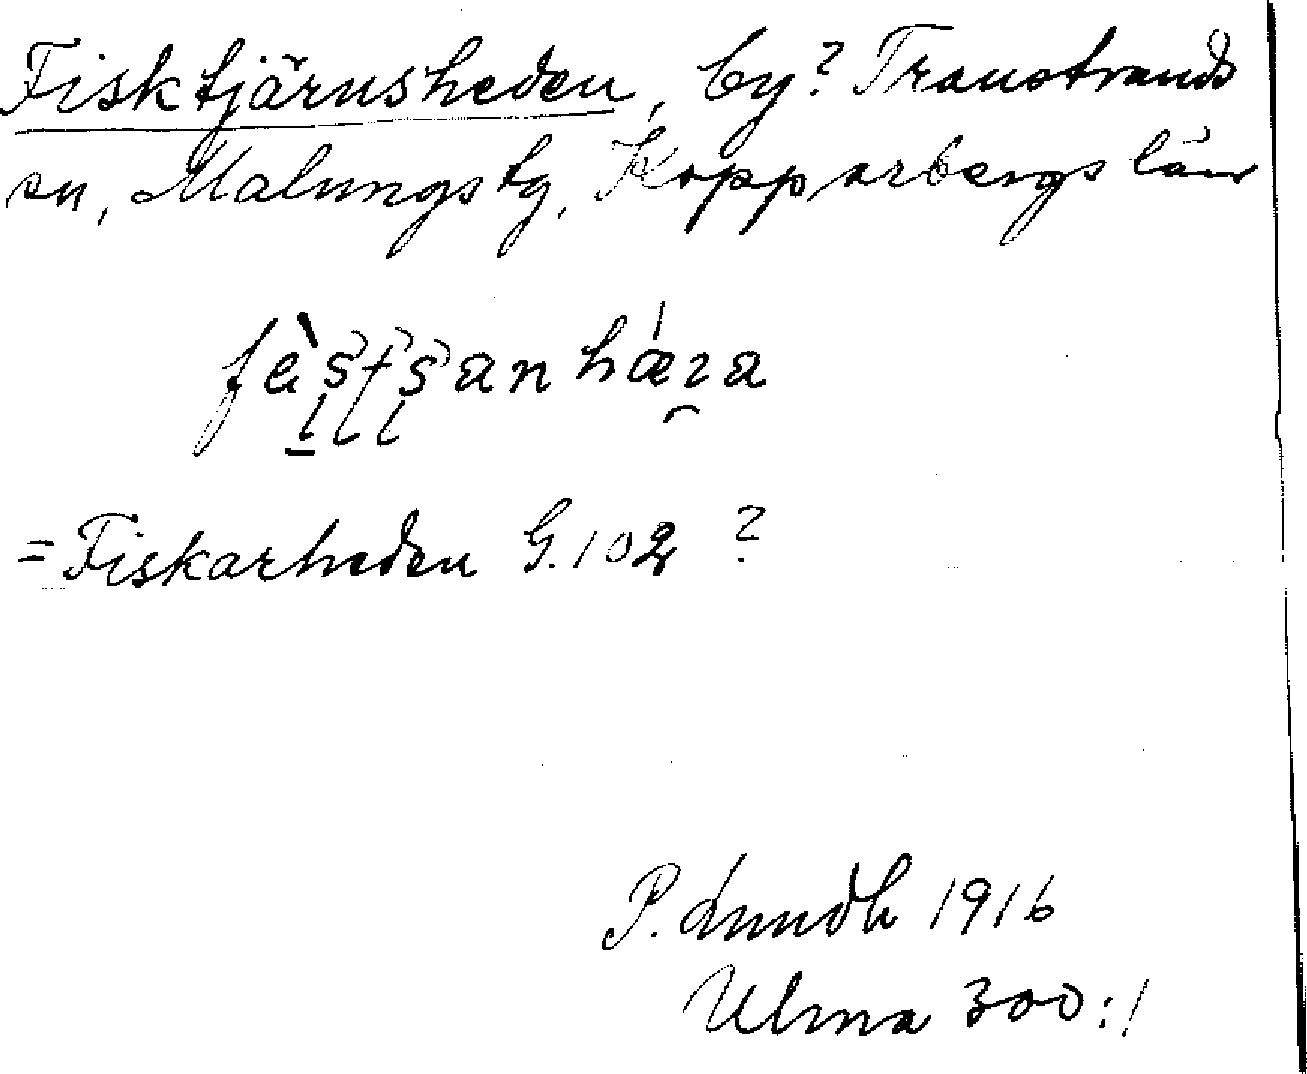 Fisktjärnsheden, by? Transtrands
sn, Malungs tg, Kopparbergs län
= Fiskarheden G.102 ?
P. Lundh 1916
Ulma 300:1